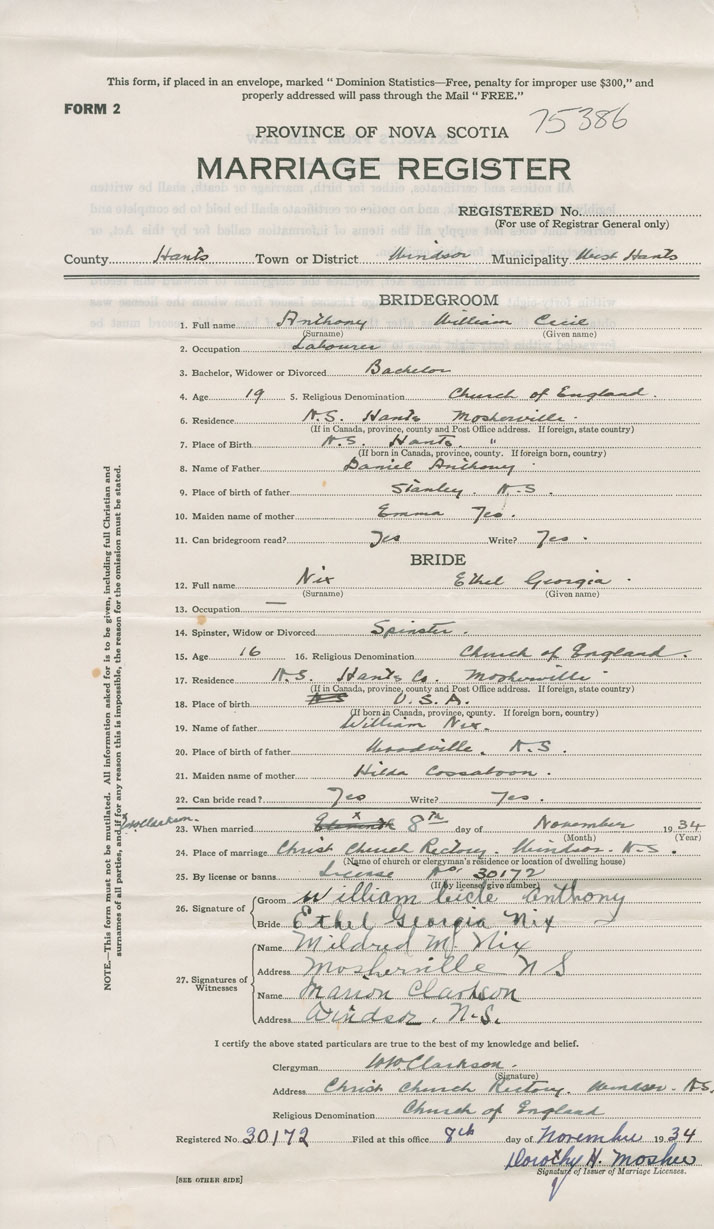 This form, if placed in an envelope, marked " Dominion Statistics—Free, penalty for improper use $300," and
properly addressed will pass through the Mail " FREE."
FORM 2
75386
PROVINCE OF NOVA SCOTIA
MARRIAGE REGISTER
REGISTERED No.
(For use of Registrar General only)
County Hants Town or District Windsor Municipality West Hants
BRIDEGROOM
1. Full name Anthony William Cecil
(Surname) (Given name)
2. Occupation Labourer
3. Bachelor, Widower or Divorced Bachelor
4. Age 19 5. Religious Denomination Church of England.
6. Residence N.S. Hants Mosherville
(If in Canada, province, county and Post Office address. If foreign, state country)
7. Place of Birth N.S. Hants. "
(If born in Canada, province, county. If foreign born, country)
8. Name of Father Daniel Anthony
9. Place of birth of father Stanley. N.S.
10. Maiden name of mother Emma Yeo.
11. Can bridegroom read? Yes Write? Yes.
BRIDE
12. Full name Nix Ethel Georgia
(Surname) (Given name)
13. Occupation —
14. Spinster, Widow or Divorced Spinster.
15. Age 16 16. Religious Denomination Church of England.
17. Residence N.S. Hants Co. Mosherville
(If in Canada, province, county and Post Office address. If foreign, state country)
18. Place of birth NS U.S.A.
(If born in Canada, province, county. If foreign born, country)
19. Name of father William Nix.
20. Place of birth of father Woodville. N.S.
21. Maiden name of mother Hilda Cossaboon.
22. Can bride read? Yes Write? Yes.
23. When married x 8th day of November 1934
(Month) (Year)
24. Place of marriage Christ Church Rectory. Windsor. N.S.
(Name of church or clergyman's residence or location of dwelling house)
25. By license or banns License No. 30172
(If by license, give number)
26. Signature of Groom William Cicle Anthony
Bride Ethel Georgia Nix
27. Signatures of Witnesses
Name Mildred M. Nix
Address Mosherville N S
Name Marion Clarkson
Address Windsor. N.S.
I certify the above stated particulars are true to the best of my knowledge and belief.
Clergyman WWClarkson.
(Signature)
Address Christ Church Rectory. Windsor. N.S.
Religious Denomination Church of England
Registered No. 30172 Filed at this office 8th day of November 1934
Dorothy H. Mosher
Signature of Issuer of Marriage Licenses.
[SEE OTHER SIDE]
NOTE.—This form must not be mutilated. All information asked for is to be given, including full Christian and
surnames of all parties, and if for any reason this is impossible, the reason for the omission must be stated.
x WWClarkson.